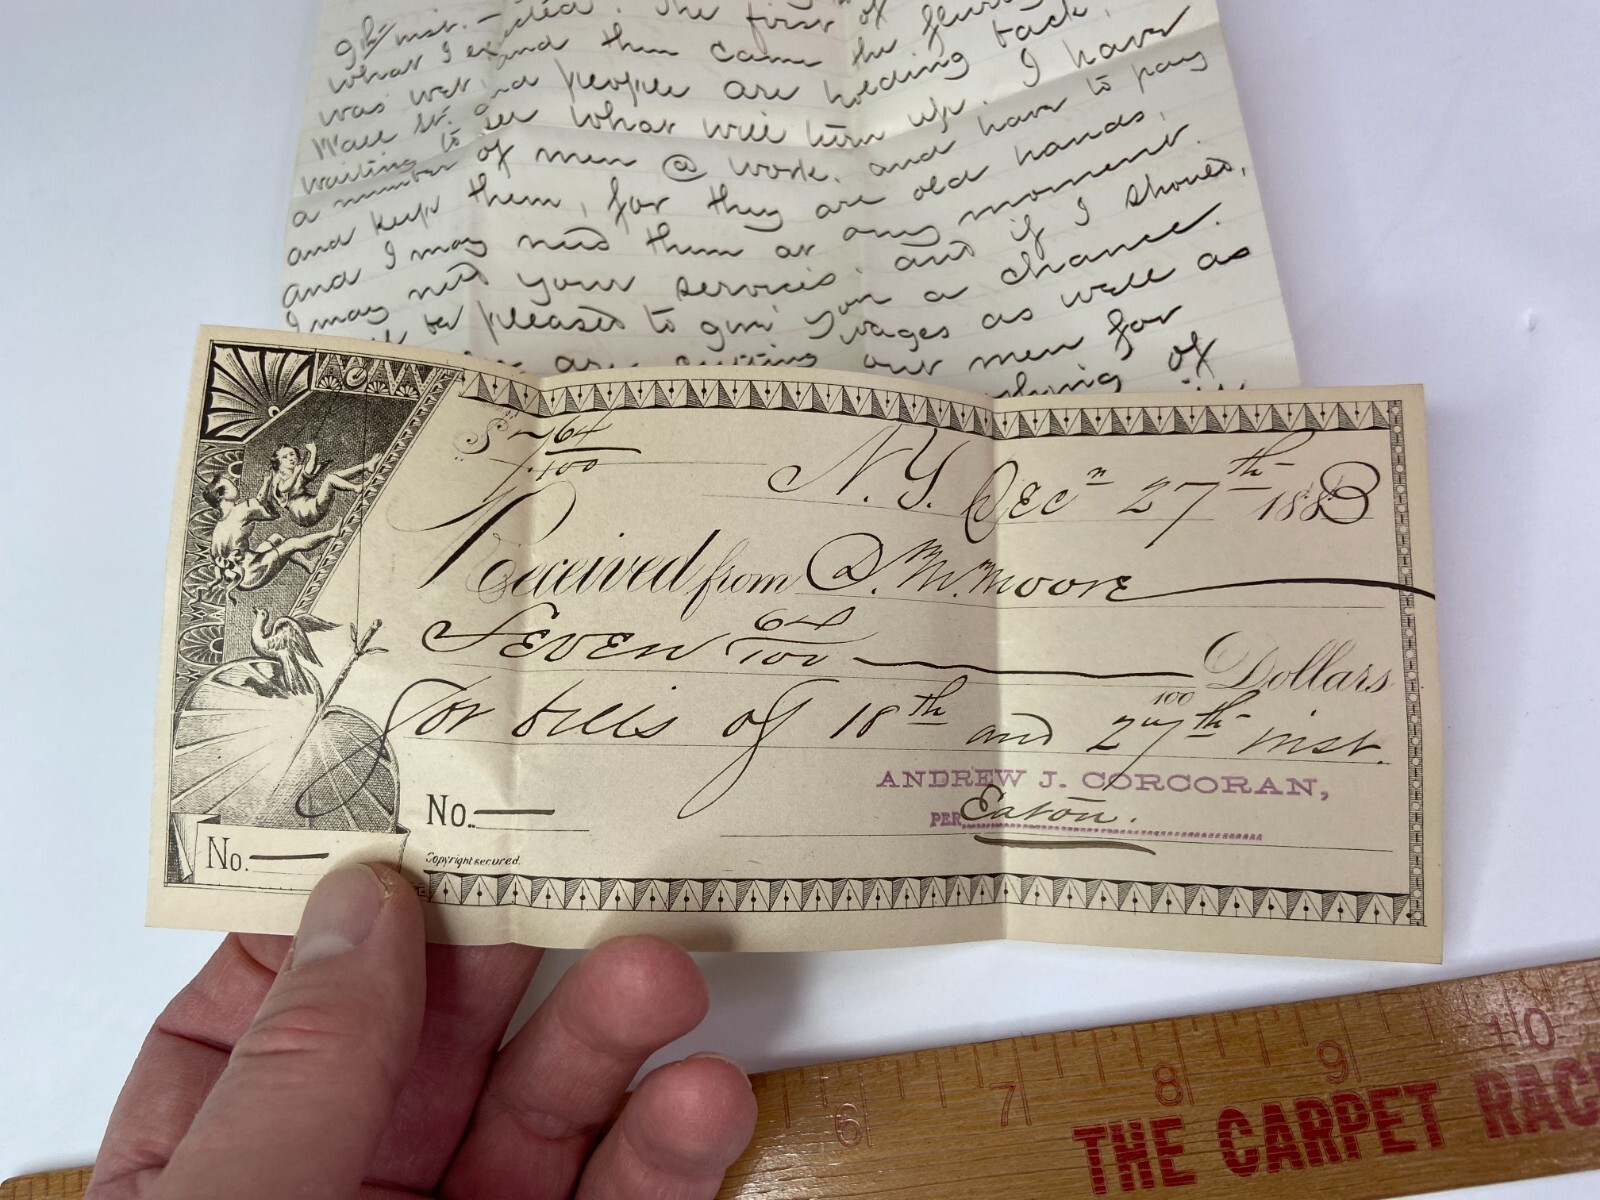 9th inst. - The first of the
what I expected.
was wet and then came the flurry
Wall St. and people are holding back,
waiting to see what will turn up. I have
a number of men @ work. and have to pay
and keep them, for they are old hands,
and I may need them at any moment.
I may need your services. and if I should,
be pleased to give you a chance.
are cutting wages as well as
our men for
of
$7 64/100
N.Y. Decr 27th 1883
Received from D. McN. Moore
Seven 64/100 Dollars
100
for bills of 18th and 27th inst.
ANDREW J. CORCORAN,
PER Eaton.
No.
No.
Copyright secured.
6 7 8 9 10
THE CARPET RAC